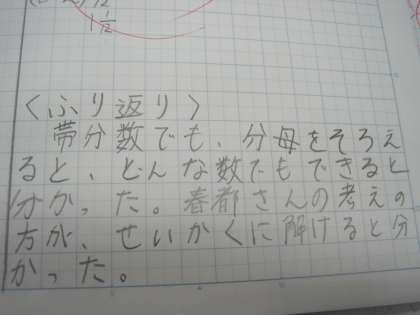 1 1/12
〈ふり返り〉
帯分数でも、分母をそろえ
ると、どんな数でもできると
分かった。春都さんの考えの
方が、せいかくに解けると分
かった。